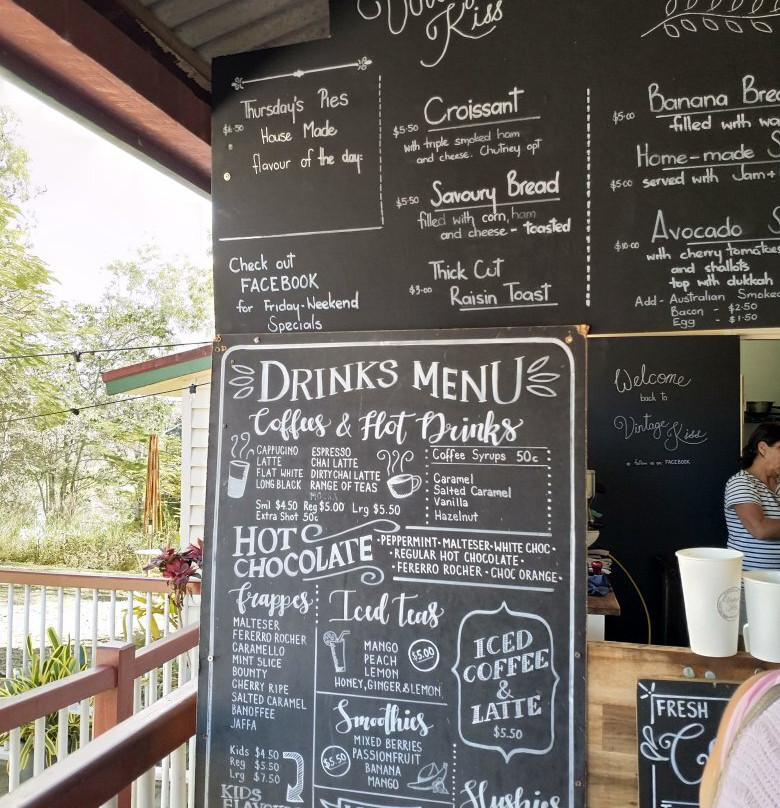 Kiss
Thursday's Pies
$6.50
House Made
flavour of the day:
Croissant
$5.50
with triple smoked ham
and cheese. Chutney opt
Savoury Bread
$5.50
filled with corn, ham
and cheese - toasted
Thick Cut
$3.00
Raisin Toast
Banana
$5.00
filled with
Home-made
$5.00
served with Jam +
Avocado
$10.00
with cherry tomatoes
and shallots
top with dukkah
Add - Australian Smoked
Bacon - $2.50
Egg - $1.50
Check out
FACEBOOK
for Friday-Weekend
Specials
DRINKS MENU
Coffees & Hot Drinks
CAPPUCINO
LATTE
FLAT WHITE
LONG BLACK
ESPRESSO
CHAI LATTE
DIRTY CHAI LATTE
RANGE OF TEAS
Sml $4.50 Reg $5.00 Lrg $5.50
Extra Shot 50c
Coffee Syrups 50c
Caramel
Salted Caramel
Vanilla
Hazelnut
HOT
CHOCOLATE
• PEPPERMINT • MALTESER • WHITE CHOC •
• REGULAR HOT CHOCOLATE •
• FERERRO ROCHER • CHOC ORANGE •
Frappes
MALTESER
FERERRO ROCHER
CARAMELLO
MINT SLICE
BOUNTY
CHERRY RIPE
SALTED CARAMEL
BANOFFEE
JAFFA
Kids $4.50
Reg $5.50
Lrg $7.50
KIDS
Iced Teas
MANGO
PEACH
LEMON
HONEY, GINGER & LEMON
$5.00
Smoothies
MIXED BERRIES
PASSIONFRUIT
BANANA
MANGO
$5.50
ICED
COFFEE
&
LATTE
$5.50
Slushies
Welcome
back to
Vintage Kiss
follow us on FACEBOOK
FRESH